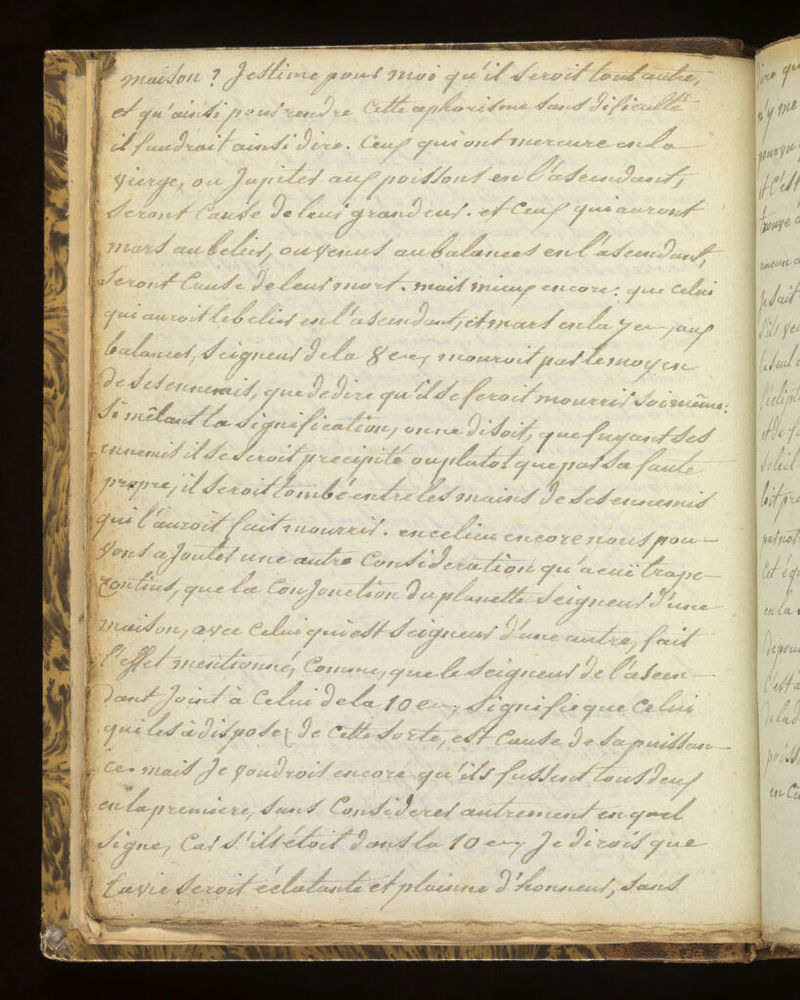 maison ? Jestime pour moi qu'il seroit tout autre,
et qu'ainsi pour rendre cette aphorisme sans dificulté
il faudrait ainsi dire. Ceux qui ont mercure en la
vierge, ou Jupiter aux poissons en l'asendant,
seront Cause de leur grandeur. et Ceux qui auront
mars au belier, ou venus au balances en l'asendant,
seront Cause de leur mort. mais mieux encore : que Celui
qui auroit le belier en l'asendant, et mars en la 7em, aux
balances, seigneur de la 8em, mouroit par le moyen
de ses ennemis, que de dire qu'il se feroit mourrir soi même :
si mêlant la signification, on ne disoit, que fuyant ses
ennemis il se seroit precipité ou plutot que par sa faute
propre, il seroit tombé entre les mains de ses ennemis
qui l'auroit fait mourrir. en ce lieu encore nous pou-
vons ajouter une autre Consideration qu'a eüe trape-
zontius, que la Conjonction du planette seigneur d'une
maison, avec Celui qui est seigneur d'une autre, fait
l'effet mentionné, Comme, que le seigneur de l'asen-
dant Joint à Celui de la 10em, signifie que Celui
qui les à disposez de Cette sorte, est Cause de sa puissan-
ce. mais Je voudrois encore qu'ils fussent tous deux
en la premiere, sans Considerer autrement en quel
signe, Car s'ils étoit dans la 10em Je dirois que
la vie seroit éclatante et plainne d'honneur, sans